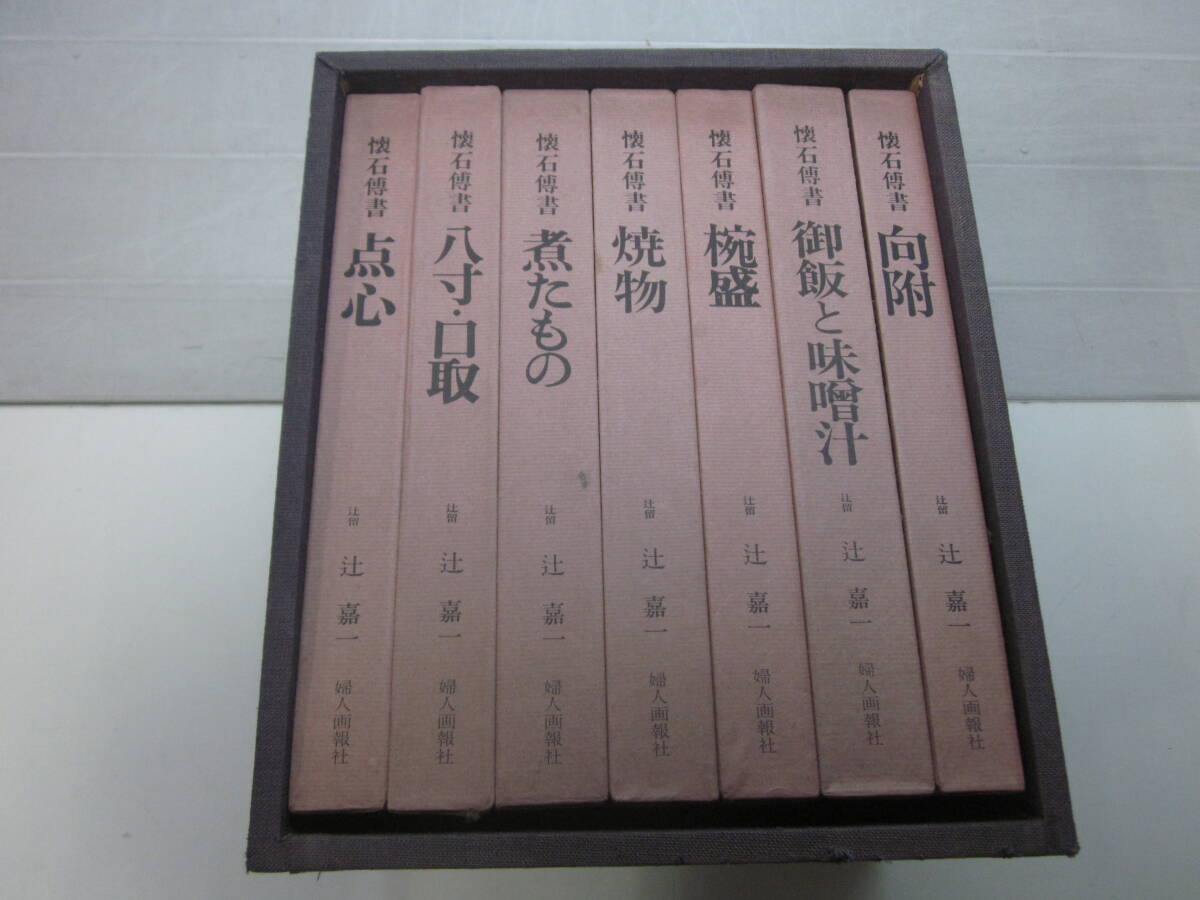 懐石傳書 向附 辻留 辻嘉一 婦人画報社
懐石傳書 御飯と味噌汁 辻留 辻嘉一 婦人画報社
懐石傳書 椀盛 辻留 辻嘉一 婦人画報社
懐石傳書 焼物 辻留 辻嘉一 婦人画報社
懐石傳書 煮たもの 辻留 辻嘉一 婦人画報社
懐石傳書 八寸・口取 辻留 辻嘉一 婦人画報社
懐石傳書 点心 辻留 辻嘉一 婦人画報社